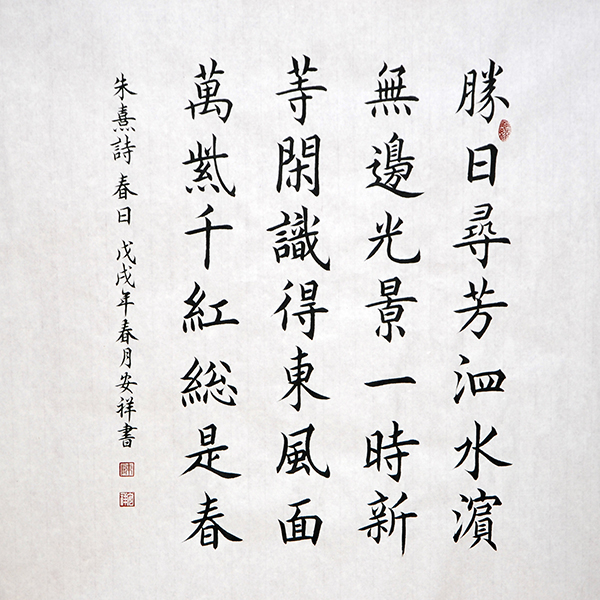 勝日尋芳泗水濵
無邊光景一時新
等閑識得東風面
萬紫千紅総是春
朱熹詩春日戊戌年春月安祥書